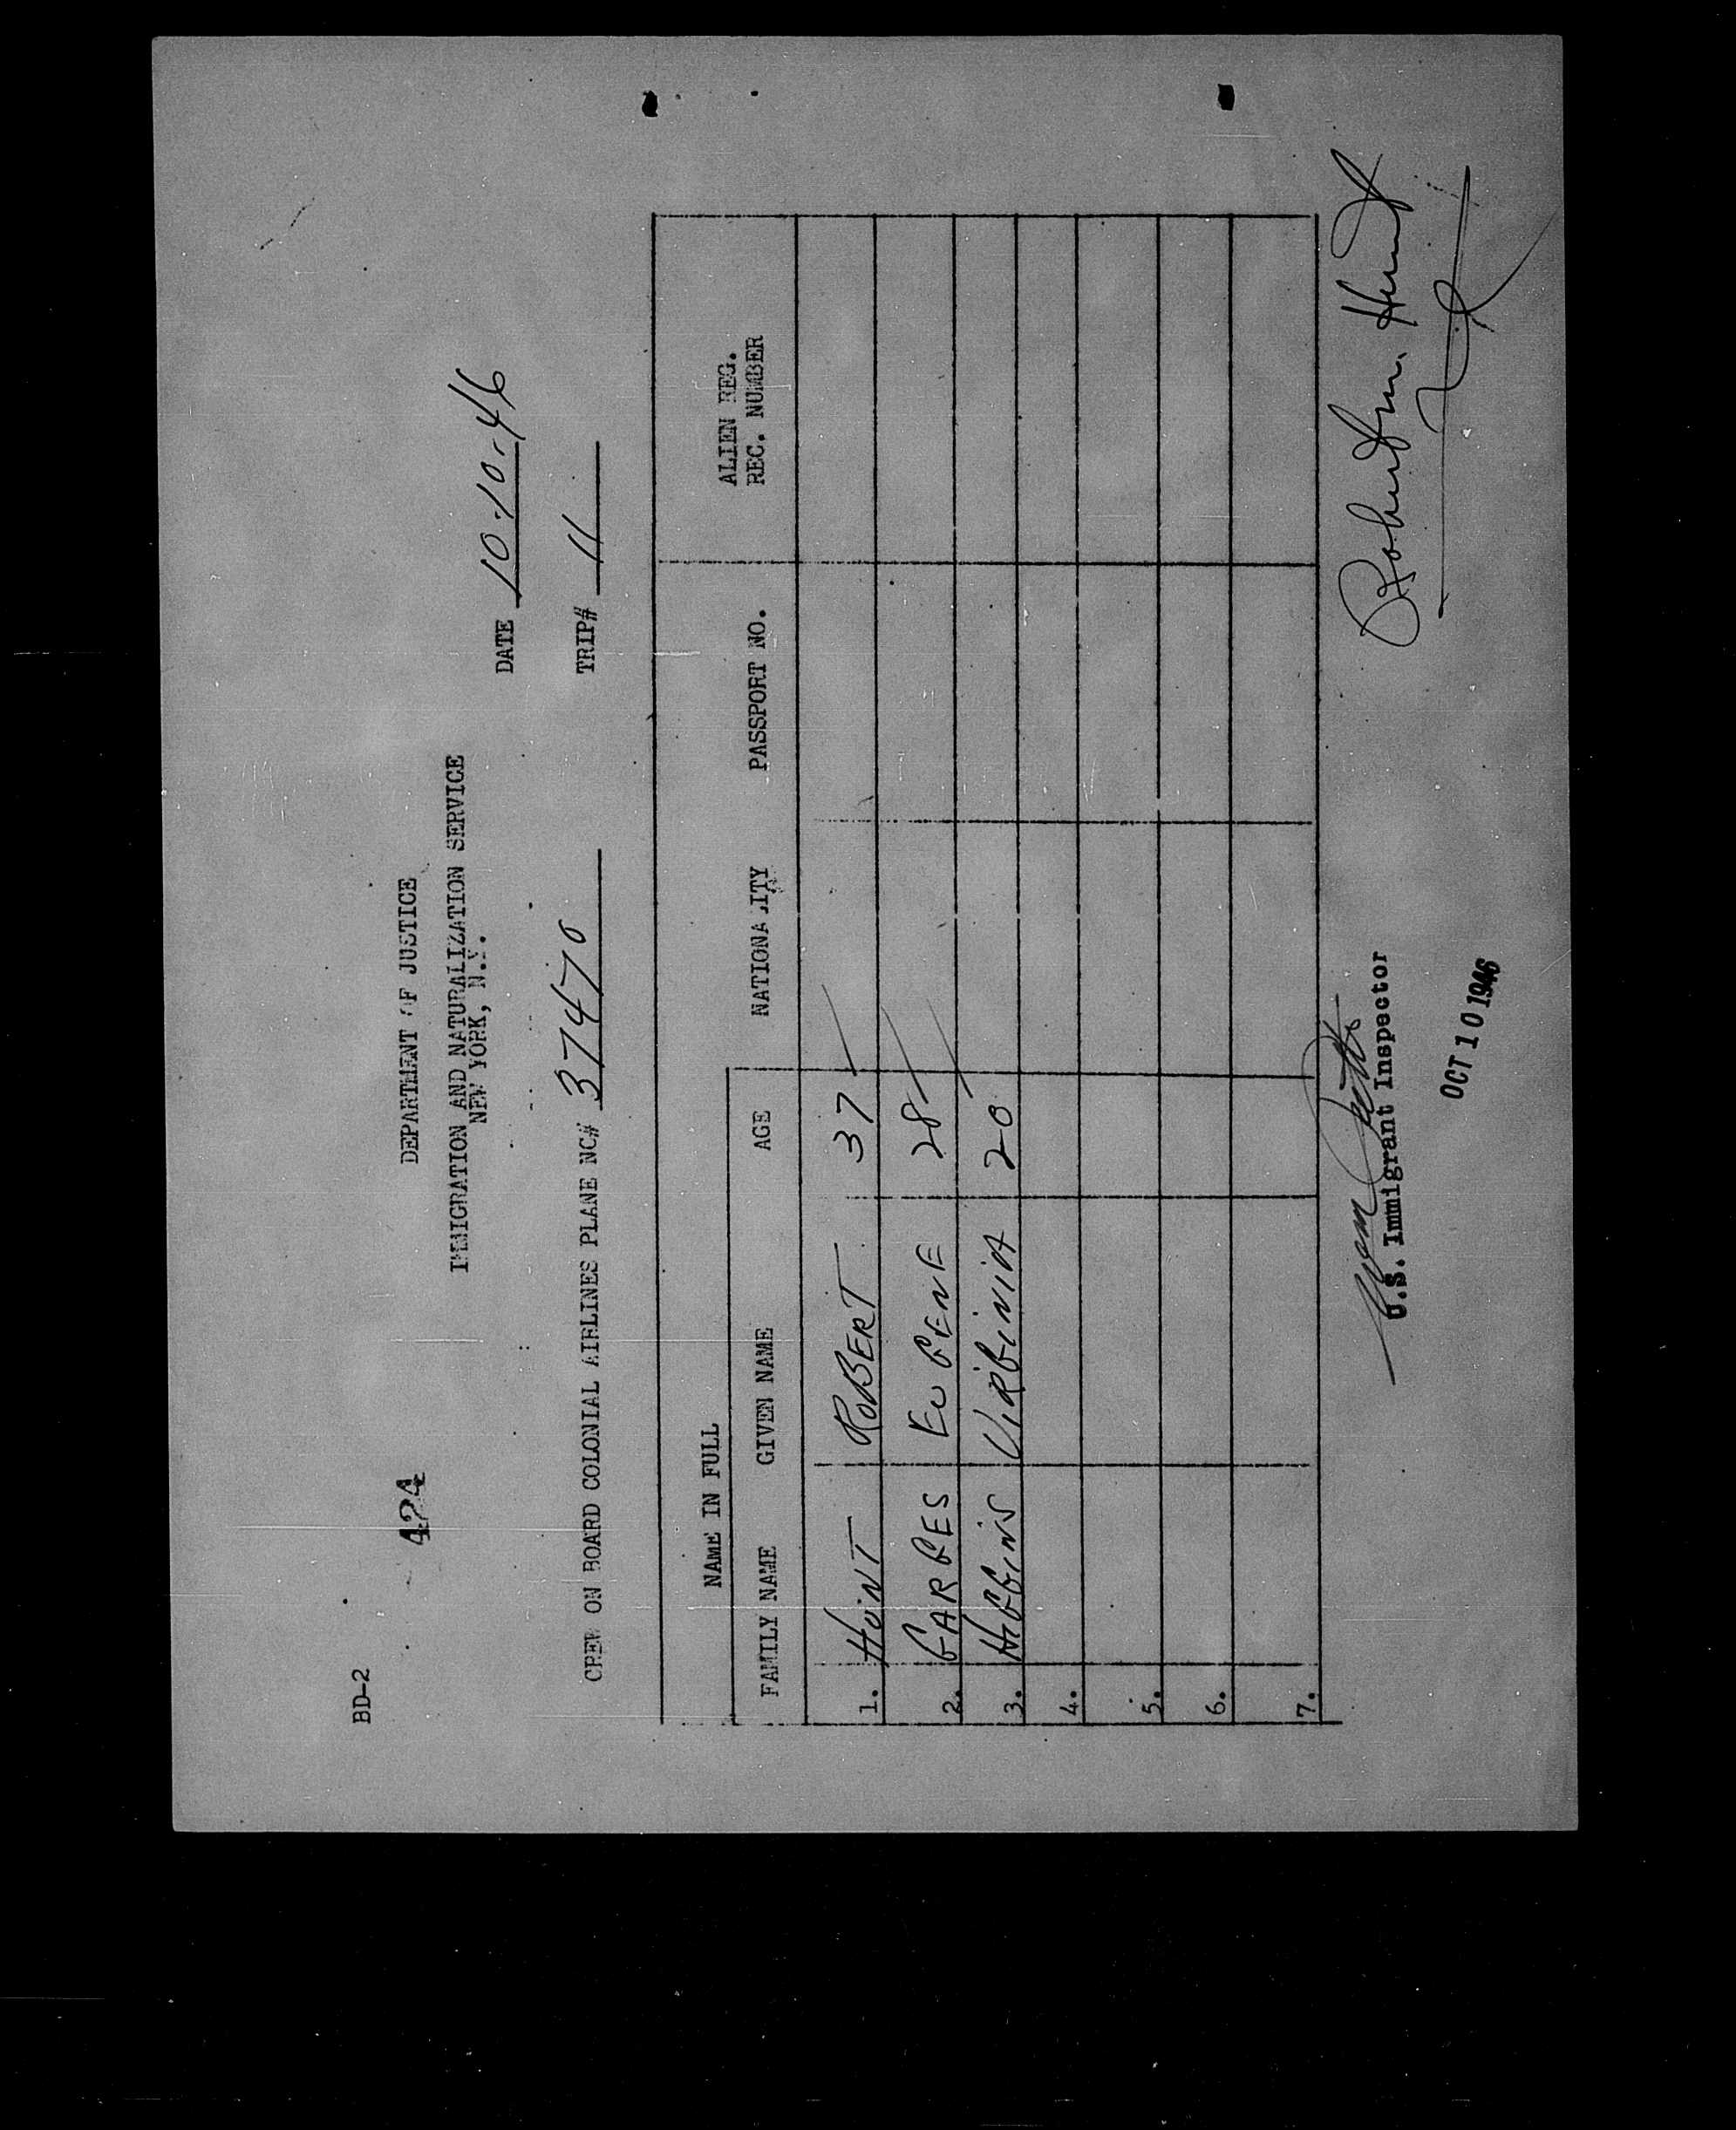 BD-2
424
DEPARTMENT OF JUSTICE
IMMIGRATION AND NATURALIZATION SERVICE
NEW YORK, N.Y.
DATE 10-10-46
CREW ON BOARD COLONIAL AIRLINES PLANE NC# 37470
TRIP# 11
NAME IN FULL
FAMILY NAME GIVEN NAME AGE NATIONALITY PASSPORT NO. ALIEN REG. REC. NUMBER
1. HUNT ROBERT 37
2. GARGES EUGENE 28
3. HIGGINS VIRGINIA 20
4.
5.
6.
7.
Robert M. Hunt
U.S. Immigrant Inspector
OCT 10 1946